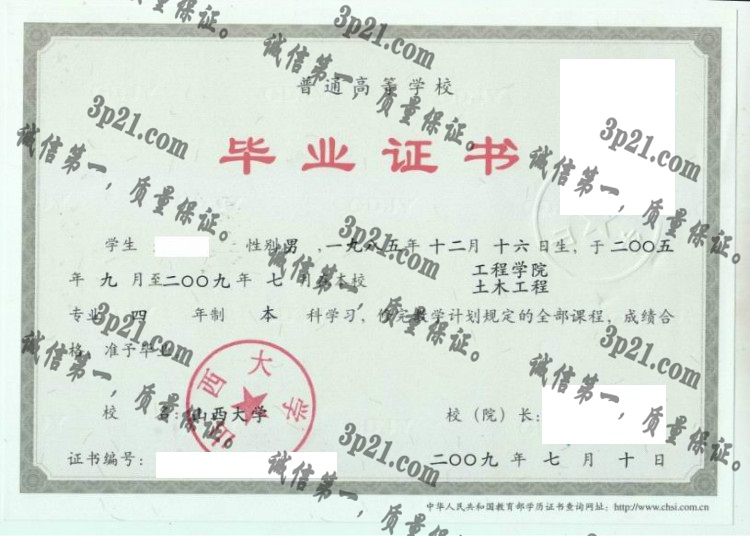 普通高等学校
毕业证书
学生 性别男，一九八五年十二月十六日生，于二〇〇五
年九月至二〇〇九年七月在本校 工程学院
土木工程
专业 四 年制 本 科学习，修完教学计划规定的全部课程，成绩合
格，准予毕业。
校 名：山西大学 校（院）长：
山西大学
证书编号： 二〇〇九年七月十日
中华人民共和国教育部学历证书查询网址：http://www.chsi.com.cn
3p21.com
诚信第一，质量保证。
3p21.com
诚信第一，质量保证。
3p21.com
诚信第一，质量保证。
3p21.com
诚信第一，质量保证。
3p21.com
诚信第一，质量保证。
3p21.com
诚信第一，质量保证。
3p21.com
诚信第一，质量保证。
质量保证。